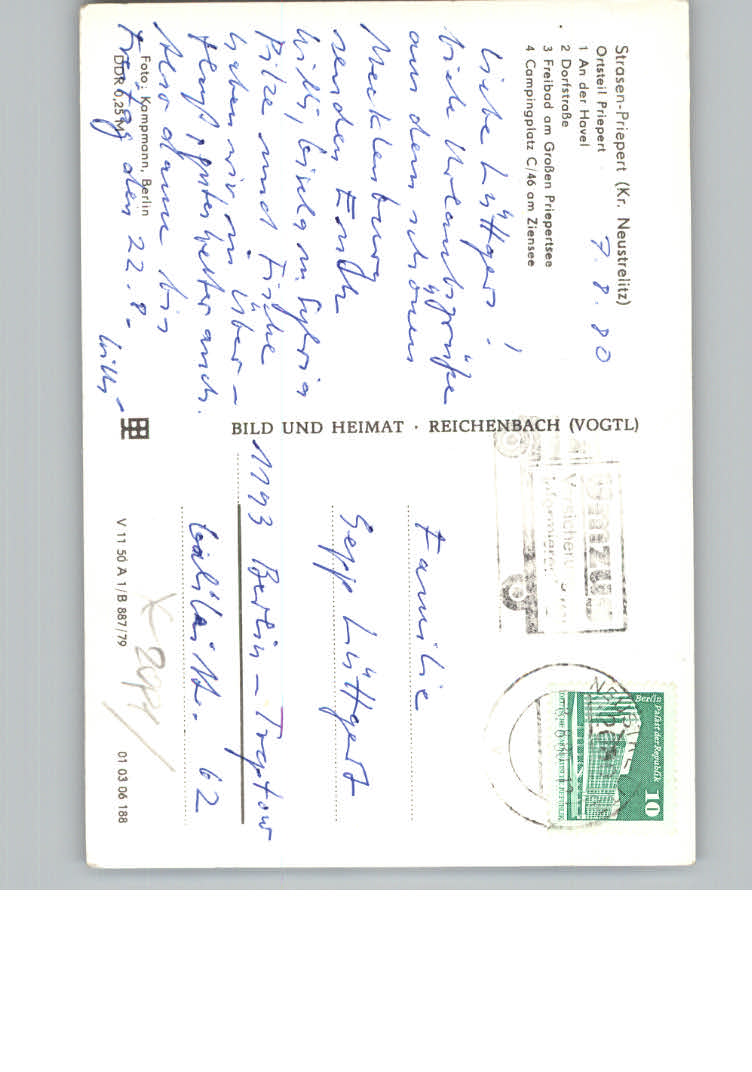 Strasen-Priepert (Kr. Neustrelitz)
Ortsteil Priepert
1 An der Havel
2 Dorfstraße
3 Freibad am Großen Priepertsee
4 Campingplatz C/46 am Ziensee
7.8.80
Liebe Lüttgers!
viele Urlaubsgrüße
aus dem schönen
Mecklenburg
senden Euch
Willi, Gisela u. Sylvia
Pilze und Fische
haben wir im Über-
fluß, gutes Wetter auch.
Also dann bis
Freitag den 22.8.
Willi
Foto: Kampmann, Berlin
DDR 0,25 M
BILD UND HEIMAT · REICHENBACH (VOGTL)
V 11 50 A 1/B 887/79
01 03 06 188
Berlin Palast der Republik
10
Familie
Sepp Lüttgert
1193 Berlin-Treptow
62